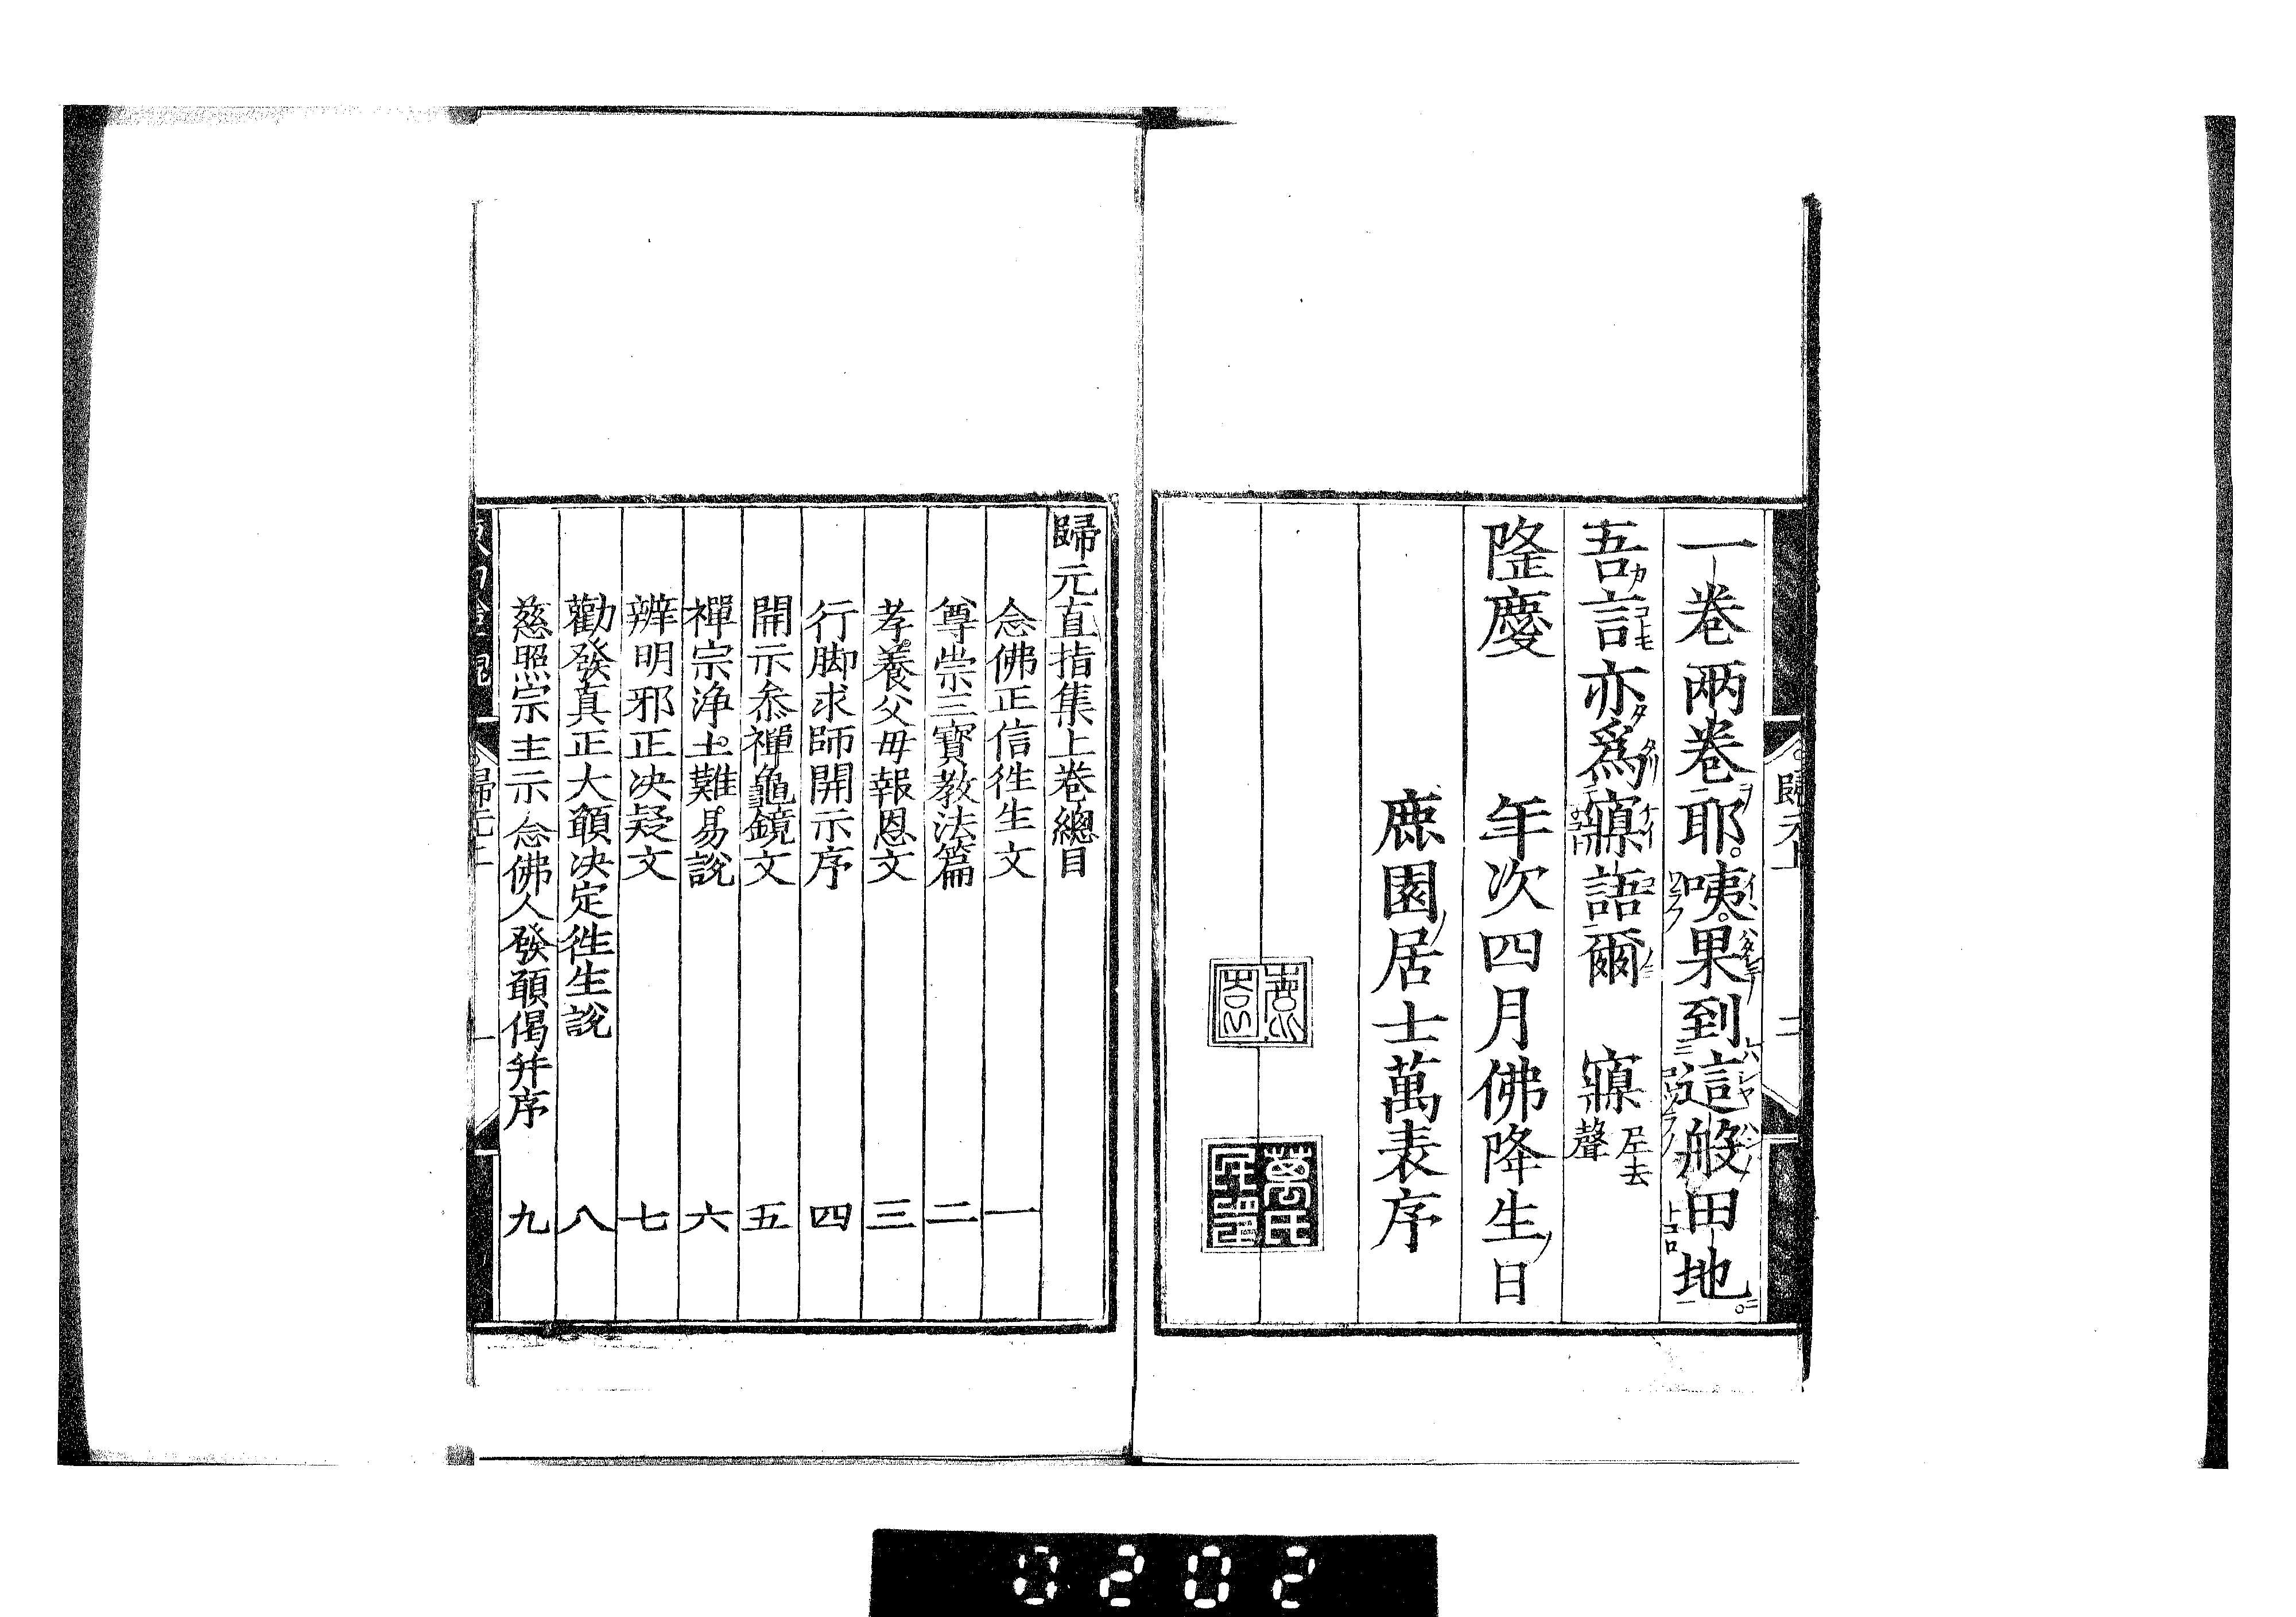 一卷兩卷耶咦果到這般田地
吾言亦爲㝱語爾　㝱尾去聲
隆慶　年次四月佛降生日
鹿園居士萬表序
萬氏
歸元直指集上卷總目
念佛正信徃生文　一
尊崇三寶教法篇　二
孝養父毋報恩文　三
行脚求師開示序　四
開示叅禪龜鏡文　五
禪宗淨土難易說　六
辨明邪正决疑文　七
勸發真正大願决定徃生說　八
慈照宗主示念佛人發願偈并序　九
歸元上　一
0202